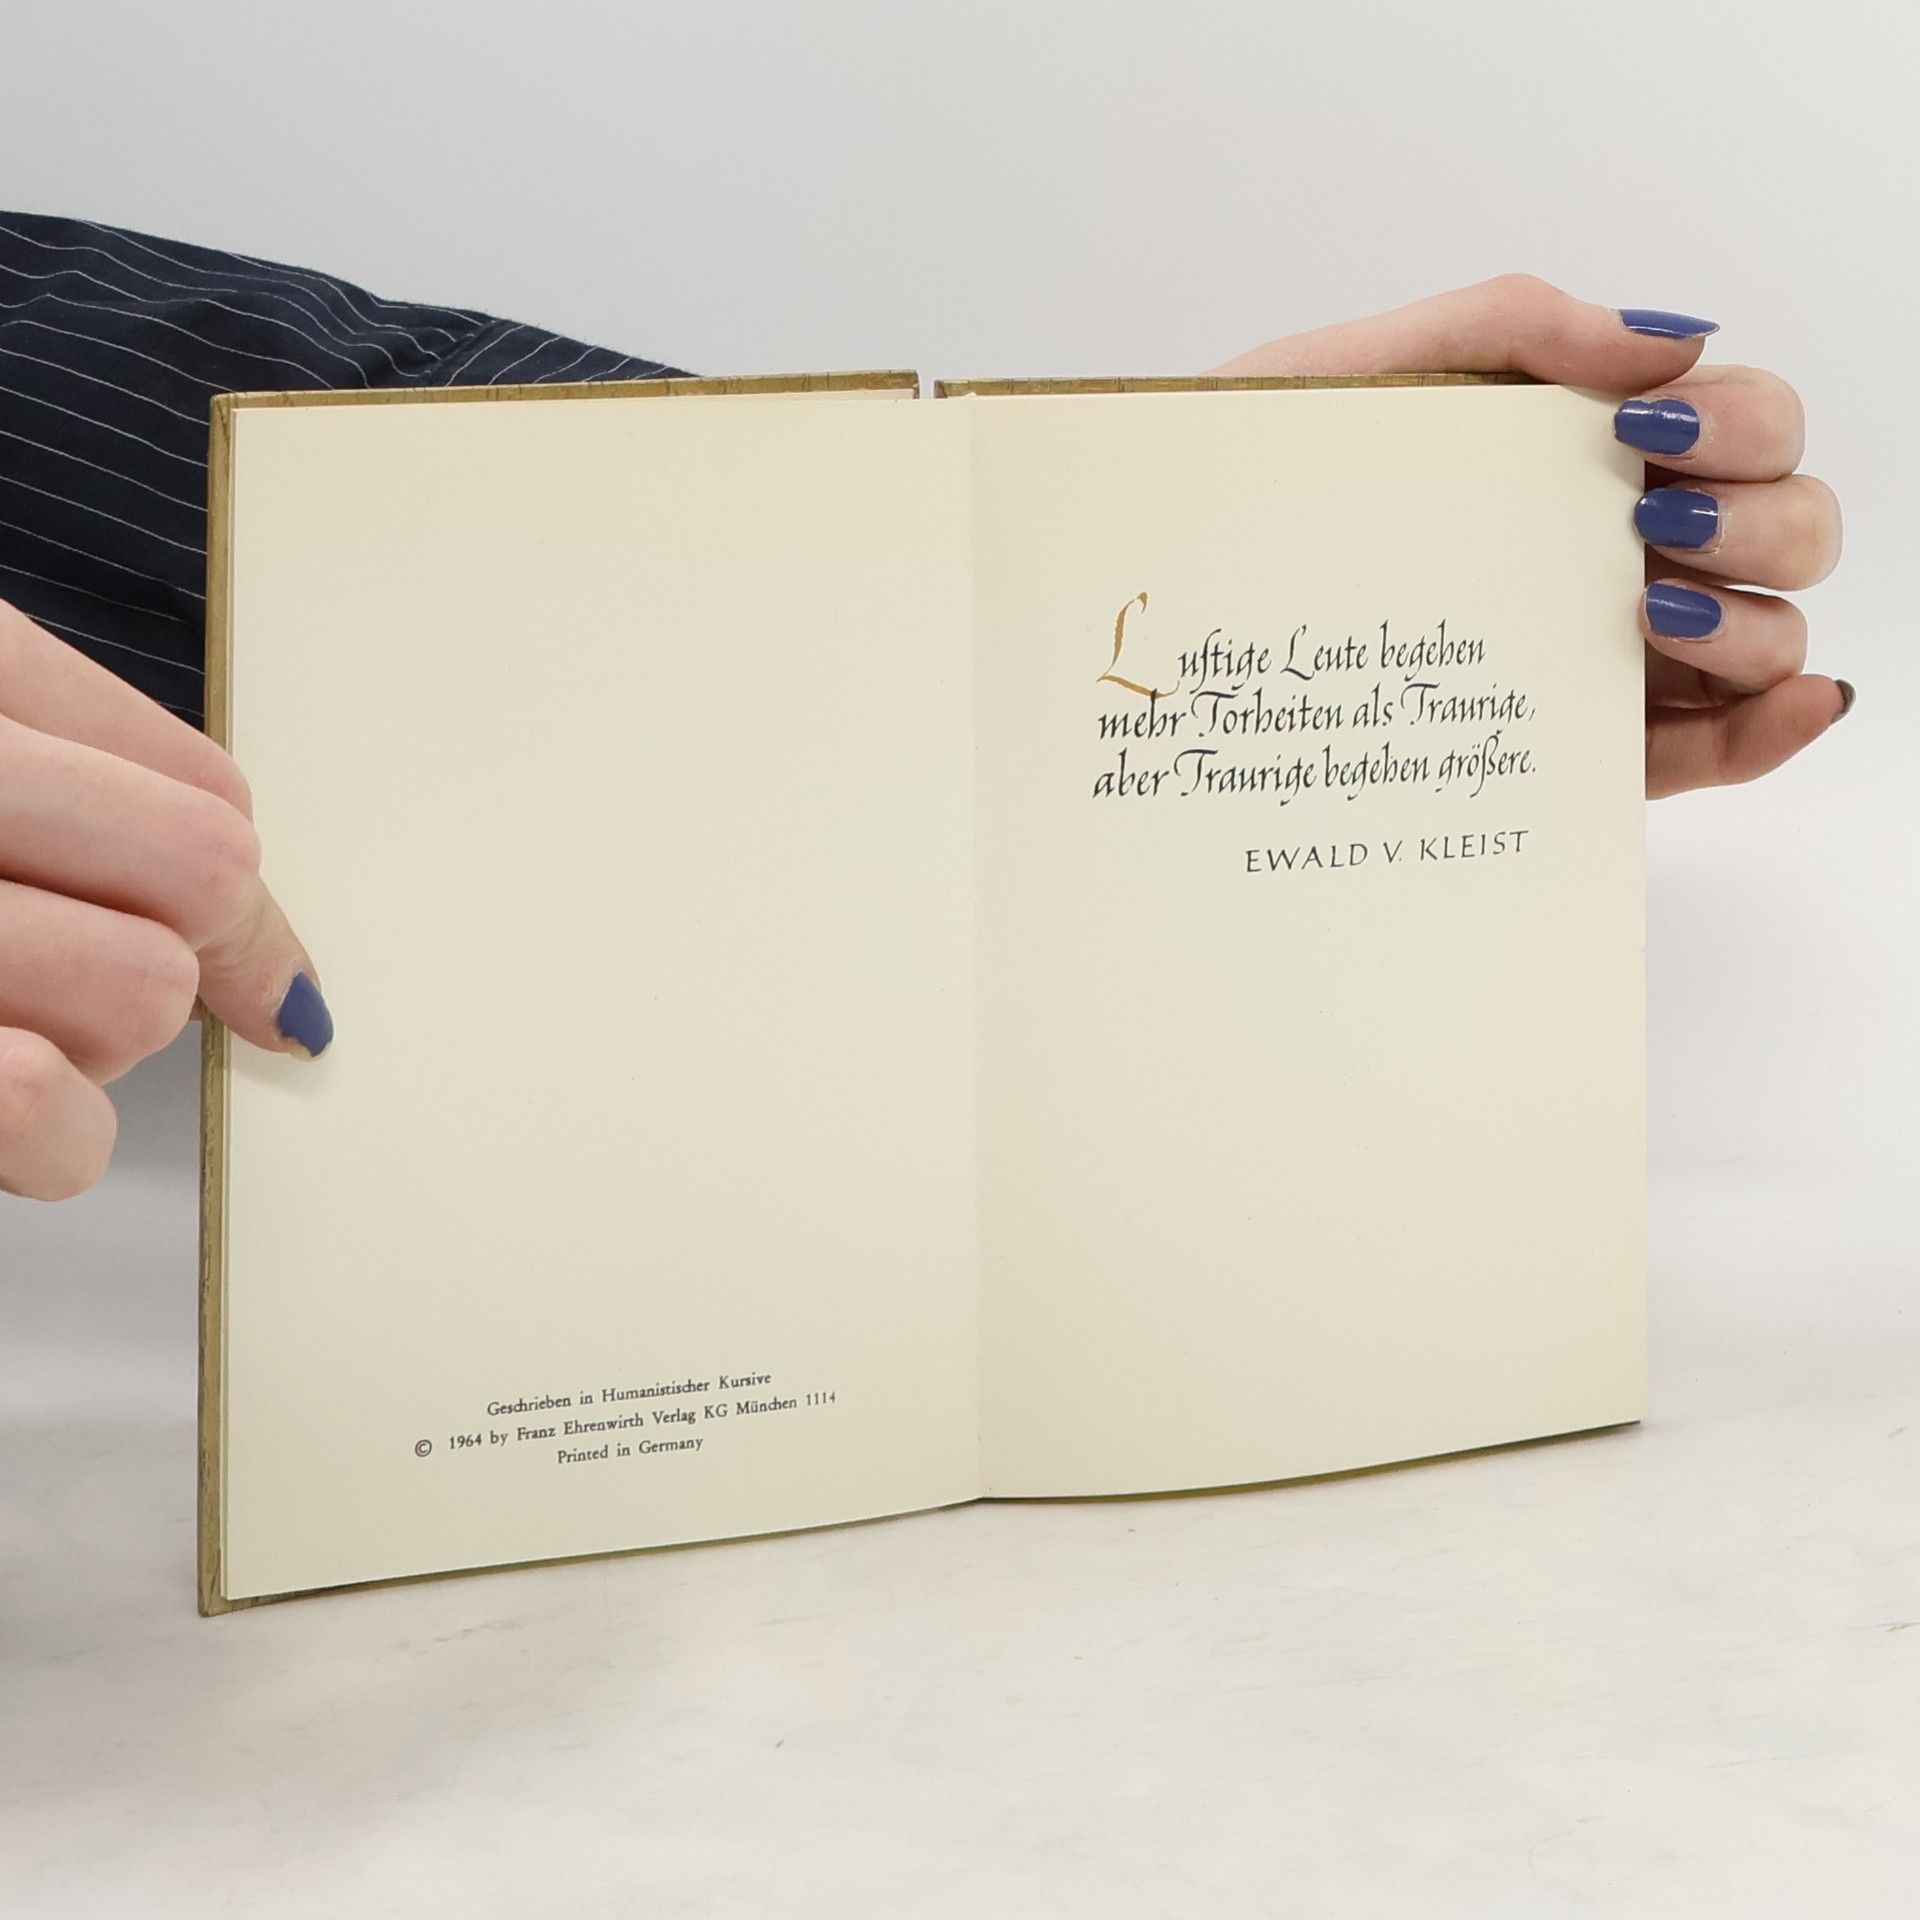 Geschrieben in Humanistischer Kursive
© 1964 by Franz Ehrenwirth Verlag KG München 1114
Printed in Germany
Luſtige Leute begehen
mehr Torheiten als Traurige,
aber Traurige begehen größere.
EWALD V. KLEIST